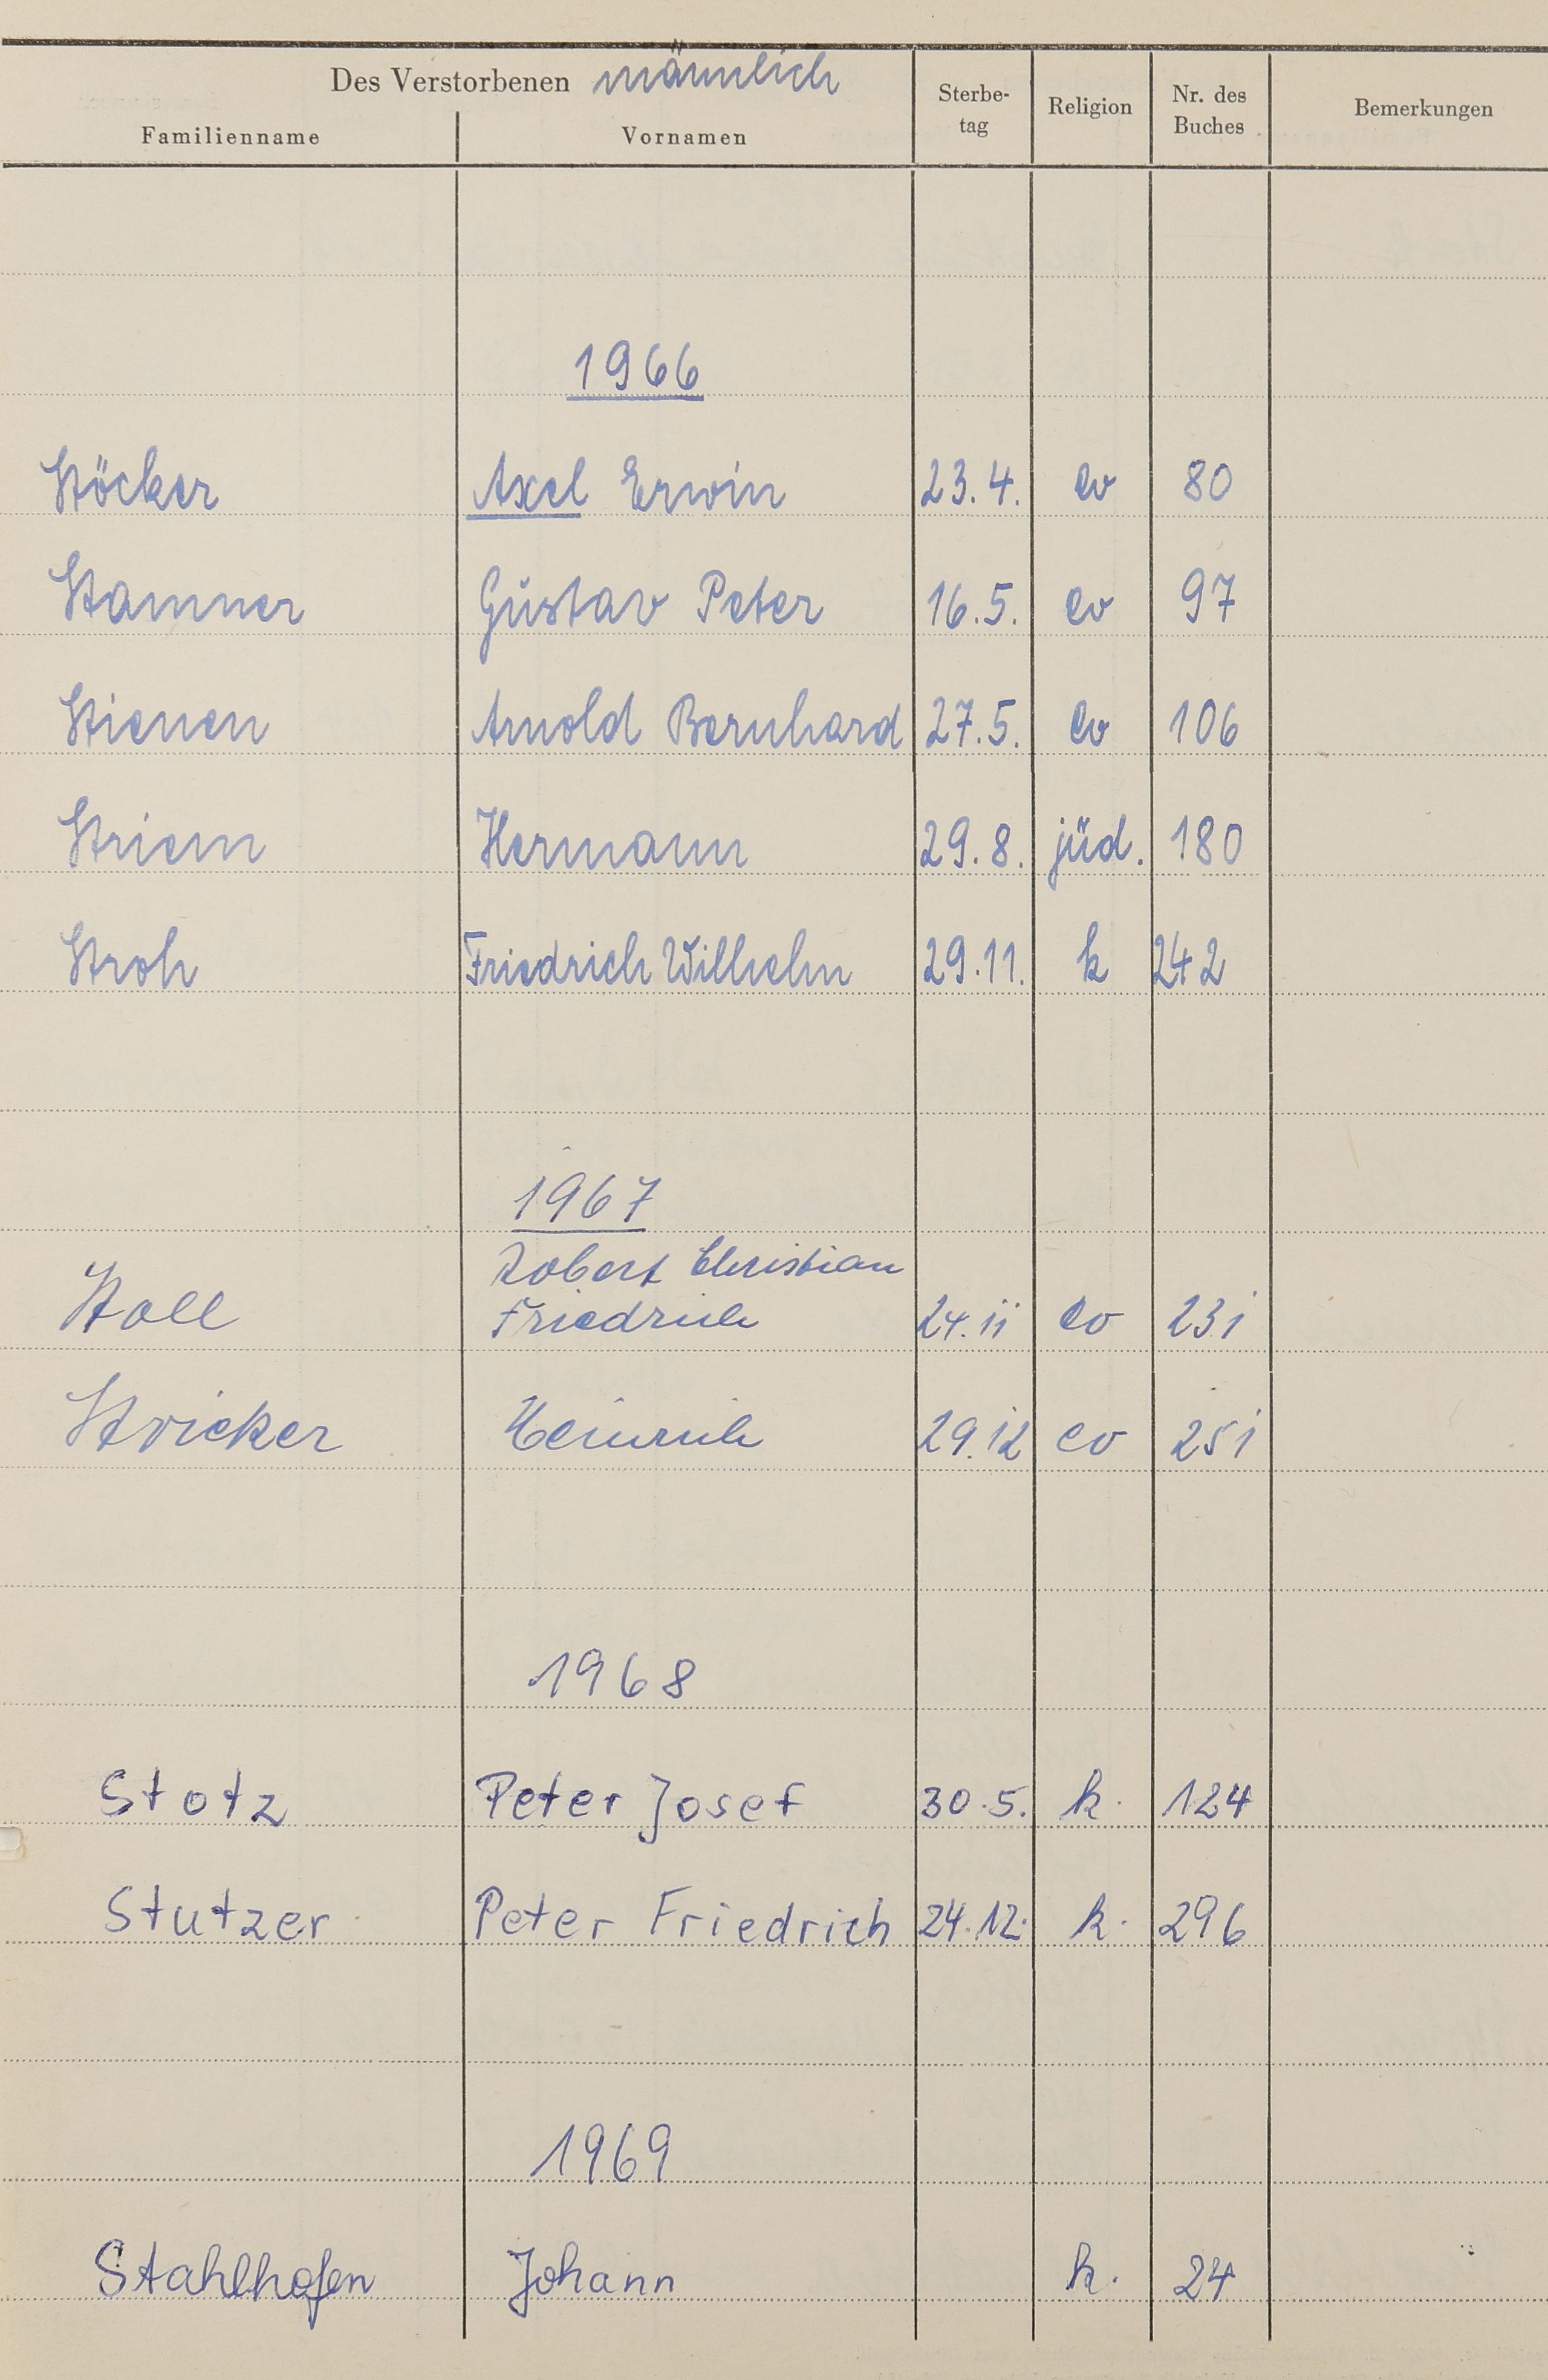 Des Verstorbenen männlich
Familienname Vornamen Sterbe-
tag Religion Nr. des
Buches Bemerkungen
1966
Stöcker Axel Erwin 23.4. ev 80
Stamner Gustav Peter 16.5. ev 97
Stienen Arnold Bernhard 27.5. ev 106
Striem Hermann 29.8. jüd. 180
Stroh Friedrich Wilhelm 29.11. k 242
1967
Robert Christian
Stoll Friedrich 24.11 ev 231
Stricker Heinrich 29.12 ev 251
1968
Stotz Peter Josef 30.5. k. 124
Stutzer Peter Friedrich 24.12. k. 296
1969
Stahlhofen Johann k. 24